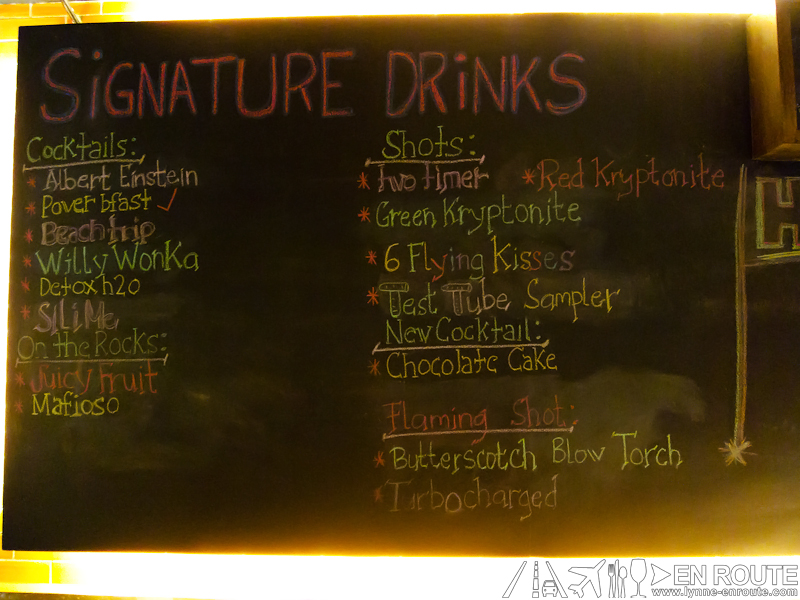 SiGNATURE DRiNKS
Cocktails:
* Albert Einstein
* Power bfast ✓
* Beach trip
* Willy Wonka
* Detox h2o
* SLiMe
On the Rocks:
* Juicy Fruit
* Mafioso
Shots:
* two timer * Red Kryptonite
* Green Kryptonite
* 6 Flying Kisses
* Test Tube Sampler
New Cocktail:
* Chocolate Cake
Flaming Shot:
* Butterscotch Blow Torch
* Turbocharged
H
EN ROUTE
www.lynne-enroute.com